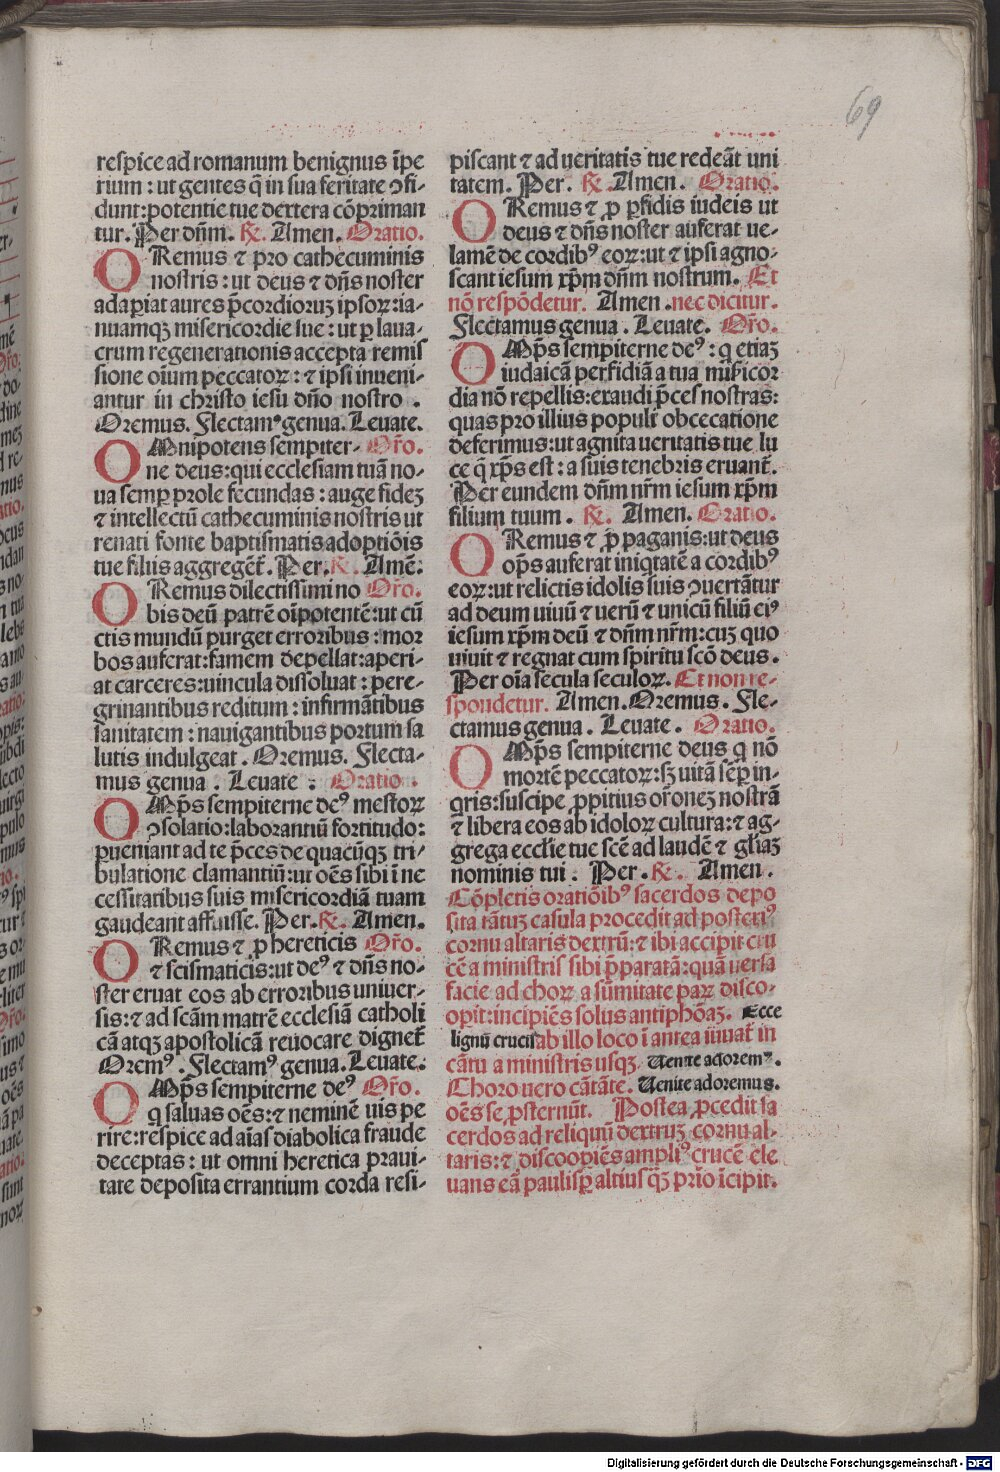 69
respice ad romanum benignus īpe
rium : ut gentes q̄ in sua feritate ↄfi-
dunt: potentie tue dextera cōpriman
tur. Per dn̄m. ℟. Amen. Oratio.
ORemus et pro cathecuminis
nostris : ut deus et dn̄s noster
adaꝑiat aures p̄cordioruꝫ ipsoꝝ: ia-
nuamqꝫ misericordie sue : ut ꝑ laua-
crum regenerationis accepta remis
sione oīum peccatoꝝ : et ipsi inueni-
antur in christo iesu dn̄o nostro .
Oremus. Flectamꝰ genua. Leuate.
OMnipotens sempiter- Or̄o.
ne deus: qui ecclesiam tuā no-
ua semꝑ prole fecundas : auge fideꝫ
et intellectū cathecuminis nostris ut
renati fonte baptismatis adoptiōis
tue filiis aggregēt̄. Per. ℟. Amē.
ORemus dilectissimi no Or̄o.
bis deū patrē oīpotentē: ut cū
ctis mundū purget erroribus : mor
bos auferat: famem depellat: aperi-
at carceres: uincula dissoluat : pere-
grinantibus reditum : infirmātibus
sanitatem : nauigantibus portum sa
lutis indulgeat . Oremus. Flecta-
mus genua . Leuate . Oratio .
OMp̄s sempiterne deꝰ mestoꝝ
ↄsolatio: laborantiū fortitudo:
ꝑueniant ad te p̄ces de quacūqꝫ tri-
bulatione clamantiū: ut oēs sibi ī ne
cessitatibus suis misericordiā tuam
gaudeant affuisse. Per. ℟. Amen.
ORemus et ꝓ hereticis Or̄o.
et scismaticis: ut deꝰ et dn̄s no-
ster eruat eos ab erroribus uniuer-
sis: et ad scām matrē ecclesiā catholi
cā atqꝫ apostolicā reuocare dignet̄
Oremꝰ. Flectamꝰ genua. Leuate.
OMp̄s sempiterne deꝰ Or̄o.
q saluas oēs: et neminē uis pe
rire: respice ad aīas diabolica fraude
deceptas : ut omni heretica praui-
tate deposita errantium corda resi-
piscant et ad ueritatis tue redeāt uni
tatem. Per. ℟. Amen. Oratio.
ORemus et ꝓ ꝑfidis iudeis ut
deus et dn̄s noster auferat ue-
lamē de cordibꝰ eoꝝ: ut et ipsi agno-
scant iesum xp̄m dn̄m nostrum. Et
nō respōdetur. Amen . nec dicitur.
Flectamus genua . Leuate. Or̄o.
OMp̄s sempiterne deꝰ : q etiaꝫ
iudaicā perfidiā a tua mīsericor
dia nō repellis: exaudi p̄ces nostras:
quas pro illius populi obcecatione
deferimus: ut agnita ueritatis tue lu
ce q̄ xp̄s est : a suis tenebris eruant̄.
Per eundem dn̄m nr̄m iesum xp̄m
filium tuum . ℟. Amen. Oratio.
ORemus et ꝓ paganis: ut deus
op̄s auferat iniqtatē a cordibꝰ
eoꝝ: ut relictis idolis suis ↄuertātur
ad deum uiuū et uerū et unicū filiū eiꝰ
iesum xp̄m deū et dn̄m nr̄m: cuꝫ quo
uiuit et regnat cum spiritu scō deus.
Per oīa secula seculoꝝ. Et non re-
spondetur. Amen. Oremus . Fle-
ctamus genua . Leuate . Oratio.
OMp̄s sempiterne deus q nō
mortē peccatoꝝ: sꝫ uitā semꝑ in-
qris: suscipe ꝓpitius or̄oneꝫ nostrā
et libera eos ab idoloꝝ cultura: et ag-
grega eccl̄ie tue scē ad laudē et gl̄iaꝫ
nominis tui . Per . ℟. Amen .
Cōpletis oratiōibꝰ sacerdos depo
sita tātuꝫ casula procedit ad posteriꝰ
cornu altaris dextrū: et ibi accipit cru
cē a ministris sibi p̄paratā: quā uersa
facie ad choꝝ a sūmitate paꝝ disco-
oꝑit: incipiēs solus antiphōaꝫ. Ecce
lignū crucis ab illo loco ī antea iuuāt̄ in
cātu a ministris usqꝫ. Uenite adoremꝰ.
Choro uero cātāte. Uenite adoremus.
oēs se ꝓsternūt. Postea ꝓcedit sa
cerdos ad reliquū dextruꝫ cornu al-
taris: et discoopiēs ampliꝰ crucē ele
uans eā paulisꝑ altius qꝫ prīo īcipit.
Digitalisierung gefördert durch die Deutsche Forschungsgemeinschaft - DFG